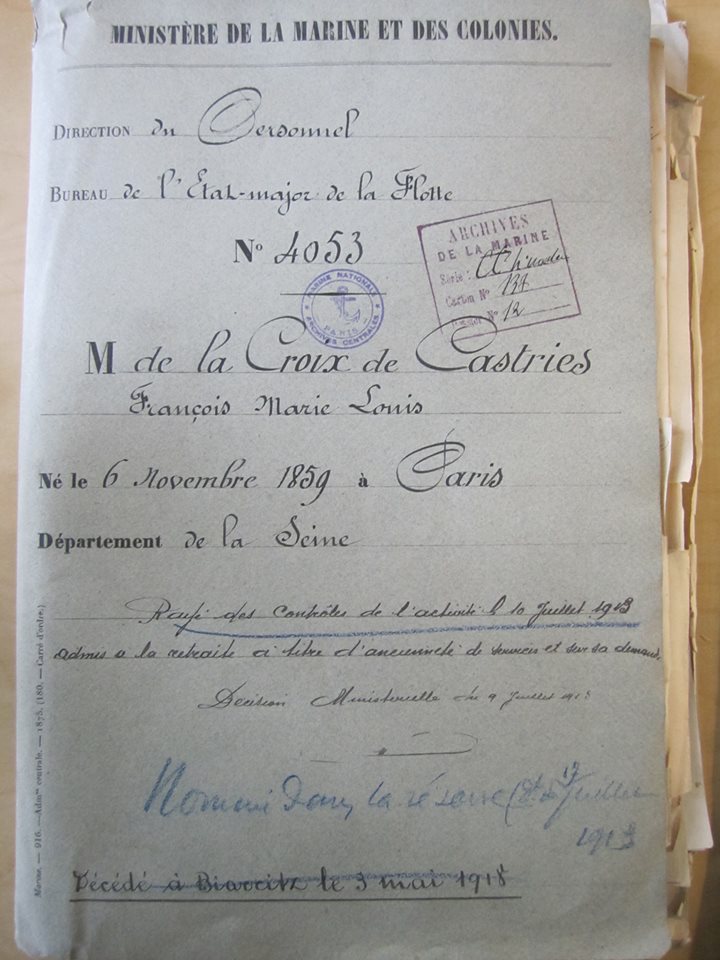 MINISTÈRE DE LA MARINE ET DES COLONIES.
DIRECTION du Personnel
BUREAU de l'État-major de la Flotte
N° 4053
ARCHIVES
DE LA MARINE
Série :
Carton N° 134
Dossier N° 12
MARINE NATIONALE
PARIS
ARCHIVES CENTRALES
M de la Croix de Castries
François Marie Louis
Né le 6 Novembre 1859 à Paris
Département de la Seine
Rayé des contrôles de l'activité le 10 Juillet 1913
admis à la retraite à titre d'ancienneté de services et sur sa demande
Décision Ministérielle du 9 Juillet 1913
Nommé dans la réserve Juillet
1913
Décédé à Biarritz le 3 mai 1918
Marine. — 916. — Adm^on centrale. — 1875. (180. — Carré d'ordre.)